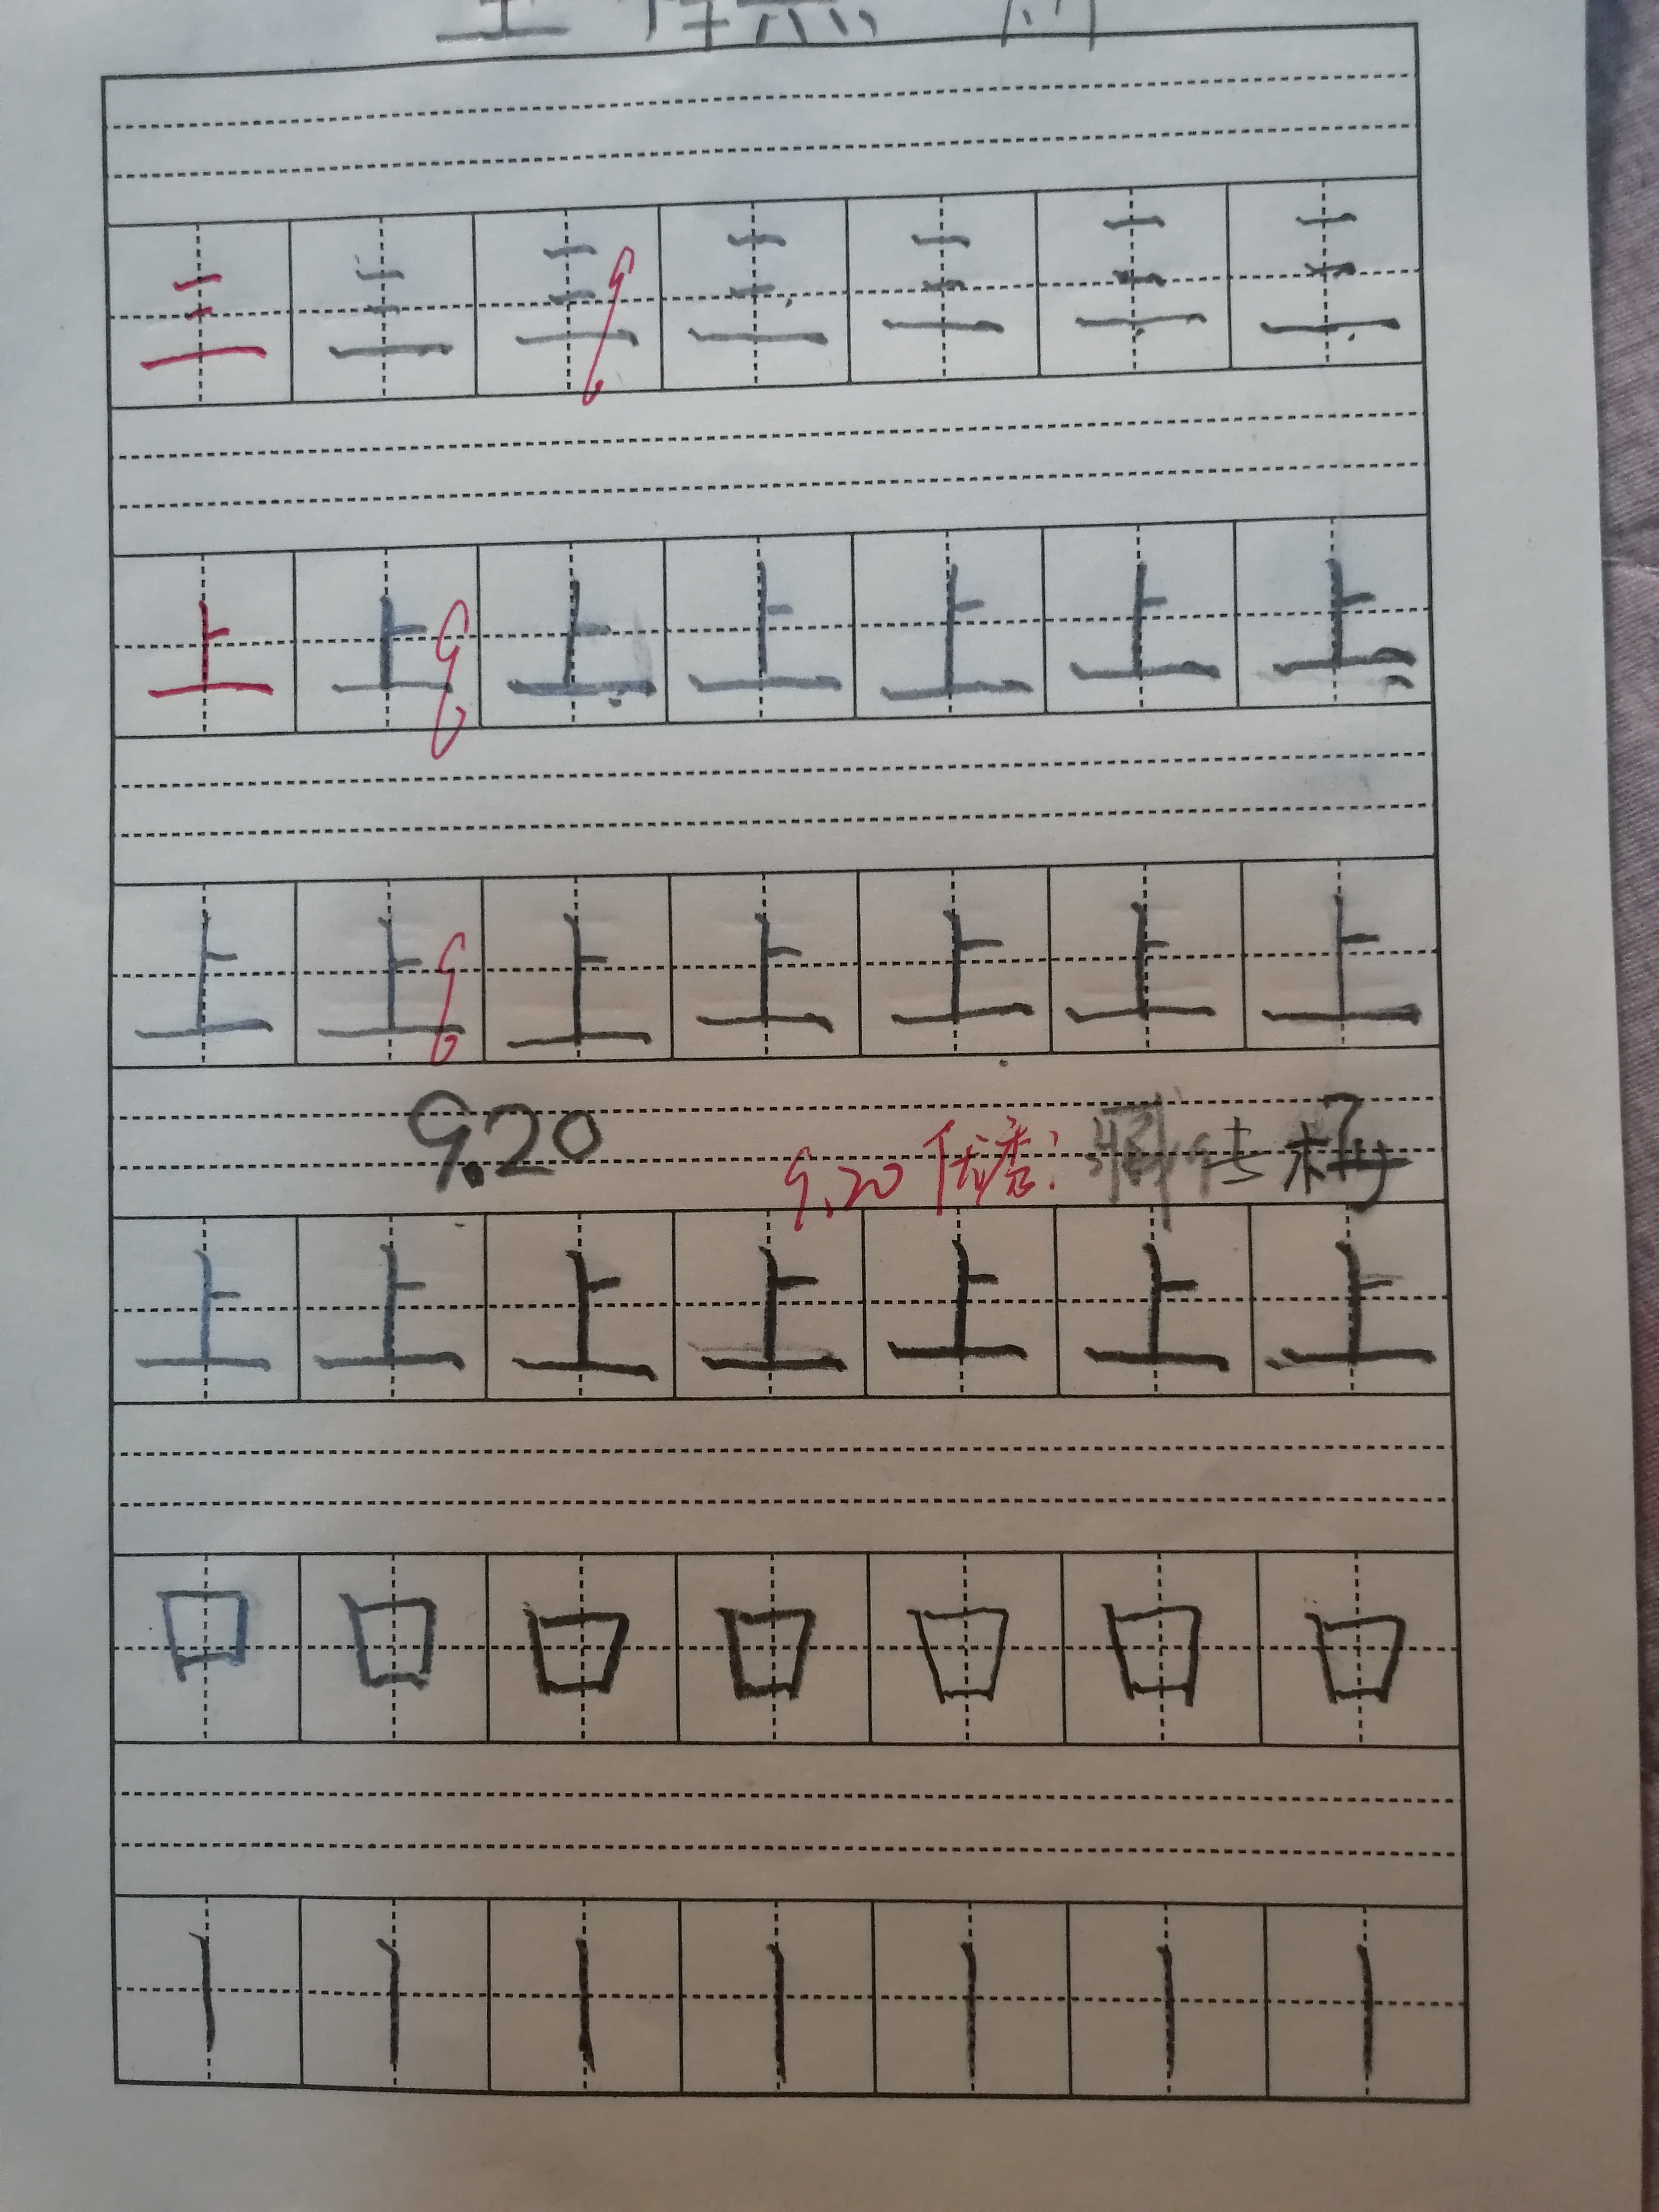 三 三 三 三 三 三 三
上 上 上 上 上 上 上
上 上 上 上 上 上 上
9.20 9.20
上 上 上 上 上 上 上
口 口 口 口 口 口 口
丨 丨 丨 丨 丨 丨 丨